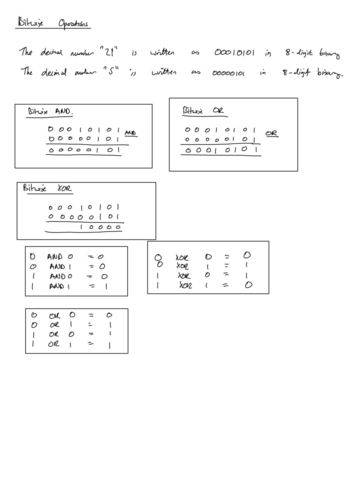 Bitwise Operations
The decimal number "21" is written as 00010101 in 8-digit binary
The decimal number "5" is written as 00000101 in 8-digit binary.
Bitwise AND.
0 0 0 1 0 1 0 1
0 0 0 0 0 1 0 1 AND
0 0 0 0 0 1 0 1
Bitwise OR
0 0 0 1 0 1 0 1
0 0 0 0 0 1 0 1 OR
0 0 0 1 0 1 0 1
Bitwise XOR
0 0 0 1 0 1 0 1
0 0 0 0 0 1 0 1
1 0 0 0 0
0 AND 0 = 0
0 AND 1 = 0
1 AND 0 = 0
1 AND 1 = 1
0 XOR 0 = 0
0 XOR 1 = 1
1 XOR 0 = 1
1 XOR 1 = 0
0 OR 0 = 0
0 OR 1 = 1
1 OR 0 = 1
1 OR 1 = 1